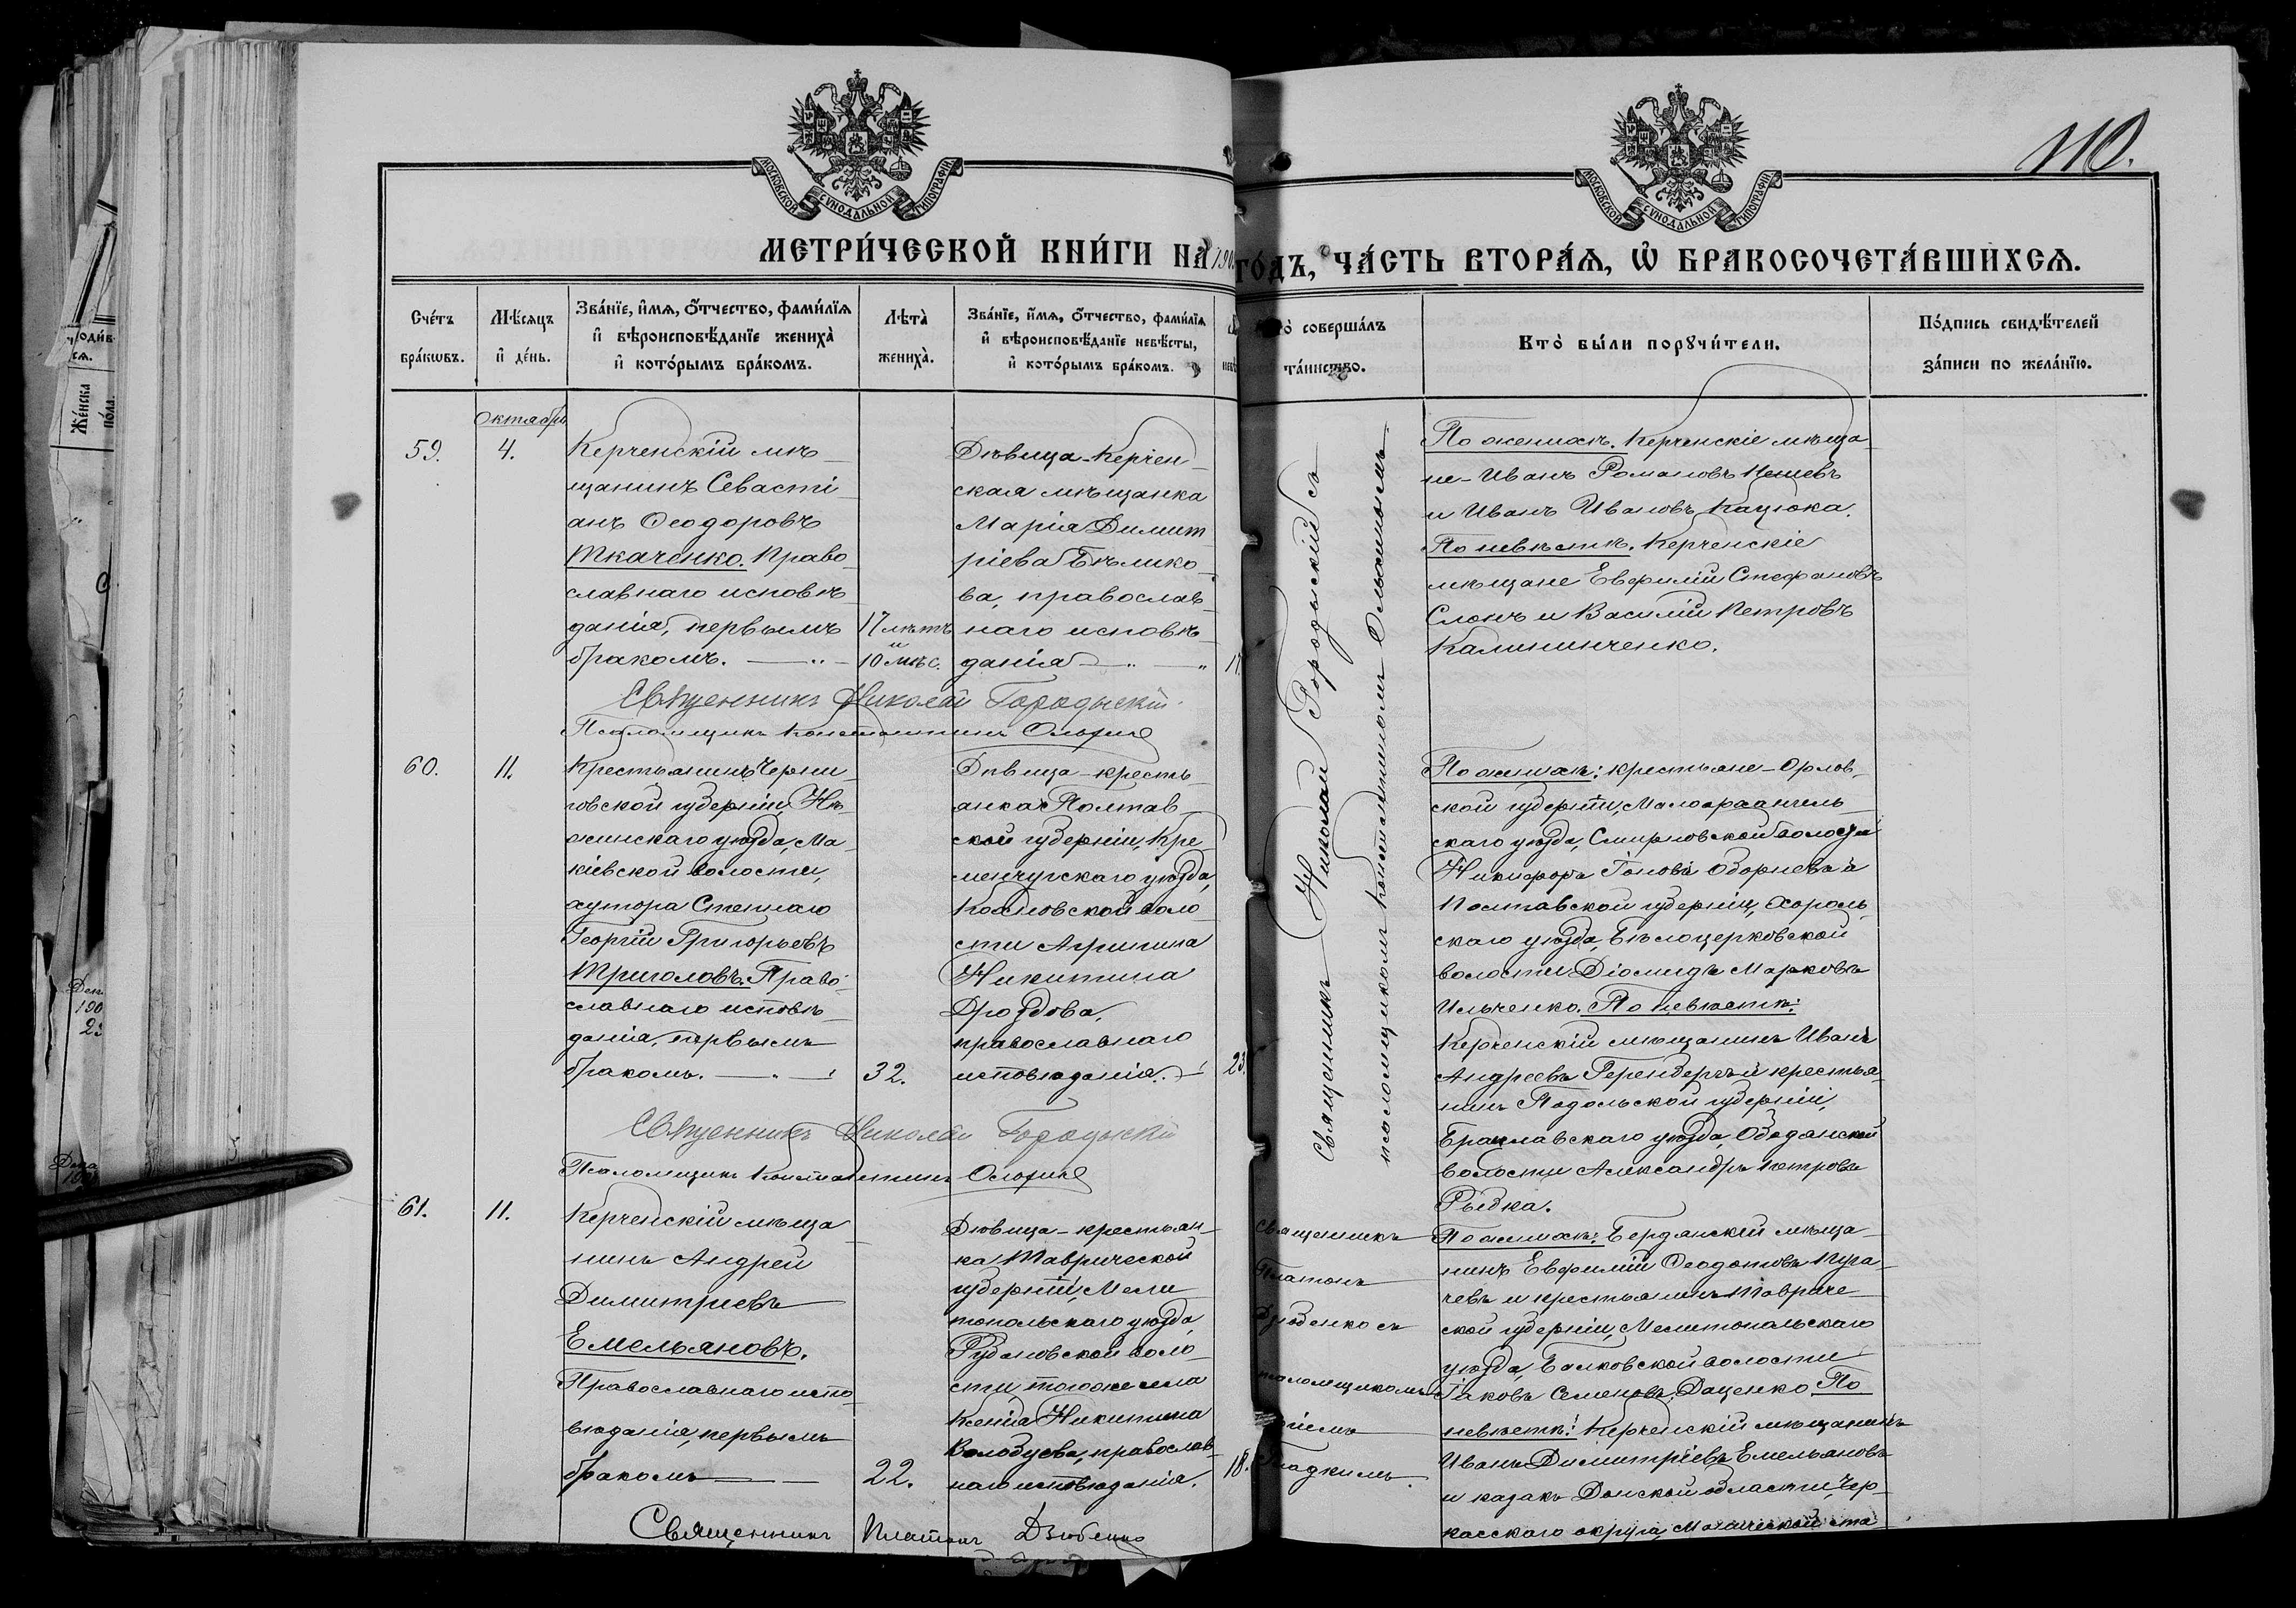 110.
МОСКОВСКОЙ СУНОДАЛЬНОЙ ТИПОГРАФІИ
МОСКОВСКОЙ СУНОДАЛЬНОЙ ТИПОГРАФІИ
МЕТРИ́ЧЕСКОЙ КНИ́ГИ НА 190
ГО́ДЪ, ЧА́СТЬ ВТОРА́Ѧ, Ѡ҆ БРАКОСОЧЕТА́ВШИХСѦ.
Сче́тъ
бра́кѡвъ.
Мѣ́сѧцъ
и҆ де́нь.
Зва́нїе, и҆́мѧ, ѻ҆́тчество, фами́лїѧ
и҆ вѣроисповѣ́данїе жениха̀
и҆ кото́рымъ бра́комъ.
Лѣта̀
жениха̀.
Зва́нїе, и҆́мѧ, ѻ҆́тчество, фами́лїѧ
и҆ вѣроисповѣ́данїе невѣ́сты,
и҆ кото́рымъ бра́комъ.
соверша́лъ
та́инство.
Кто̀ бы́ли порꙋчи́тели.
По́дпись свидѣ́телей
за́писи по жела́нїю.
Октябрь
59.
4.
Керченскій мѣ-
щанинъ Севасті-
анъ Ѳеодоровъ
Ткаченко. Право-
славнаго исповѣ-
данія, первымъ
бракомъ.
17 лѣтъ
и
10 мѣс.
Дѣвица-Керчен-
ская мѣщанка
Марія Димит-
ріева Бѣлико-
ва, православ-
наго исповѣ-
данія
17.
Священникъ Николай Городыскій съ
псаломщикомъ Константиномъ
По женихѣ. Керченскіе мѣща-
не - Иванъ Романовъ
и Иванъ Ивановъ Кацюка.
По невѣстѣ. Керченскіе
мѣщане Евфимій Стефановъ
Слонъ и Василій Петровъ
Калиниченко.
Священникъ Николай Городыскій
Псаломщикъ Константинъ
60.
11.
Крестьянинъ Черни-
говской губерніи, Нѣ-
жинскаго уѣзда, Ма-
кіевской волости,
хутора Степнаго
Георгій Григорьевъ
Триголовъ. Право-
славнаго исповѣ-
данія, первымъ
бракомъ.
32.
Дѣвица-кресть-
янка Полтав-
ской губерніи, Кре-
менчугскаго уѣзда,
Козловской воло-
сти Агрипина
Никитина
Дроздова,
православнаго
исповѣданія.
23.
По женихѣ: крестьяне - Орлов-
ской губерніи, Малоархангель-
скаго уѣзда, Смирновской волости
Никифоръ и
Полтавской губерніи, Хороль-
скаго уѣзда, Бѣлоцерковской
волости Діомидъ Марковъ
Ильченко. По невѣстѣ:
Керченскій мѣщанинъ Иванъ
Андреевъ и крестья-
нинъ Подольской губерніи,
Брацлавскаго уѣзда, Ободянской
волости Александръ Петровъ
Рыбка.
Священникъ Николай Городыскій
Псаломщикъ Константинъ
61.
11.
Керченскій мѣща-
нинъ Андрей
Димитріевъ
Емельяновъ.
Православнаго испо-
вѣданія, первымъ
бракомъ
22.
Дѣвица-крестьян-
ка Таврической
губерніи, Мели-
топольскаго уѣзда,
Рубановской воло-
сти того же села
Ксенія Никитина
Волобуева, православ-
наго исповѣданія.
18.
Священникъ
Платонъ
Дзюбенко съ
псаломщикомъ
По женихѣ: Бердянскій мѣща-
нинъ Евфимій Ѳеодотовъ Пуга-
чевъ и крестьянинъ Тавриче-
ской губерніи, Мелитопольскаго
уѣзда, Балковской волости
Іаковъ Семеновъ Даценко По
невѣстѣ: Керченскій мѣщанинъ
Иванъ Димитріевъ Емельяновъ
и казакъ Донской области, Чер-
касскаго округа, ста-
Священникъ Платонъ Дзюбенко